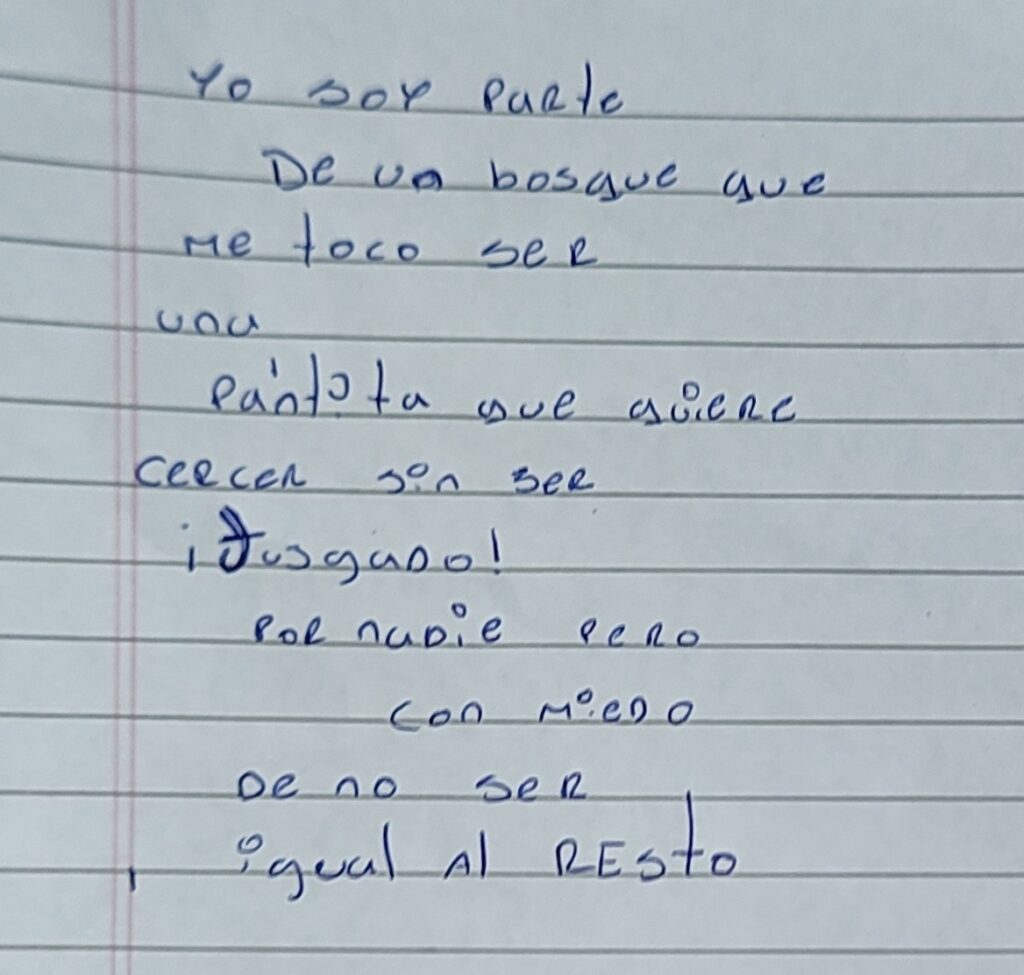 Yo soy parte
De un bosque que
me toco ser
una
Pántita que quiere
cercer sin ser
¡Jusgado!
por nadie pero
con miedo
De no ser
igual Al REsto